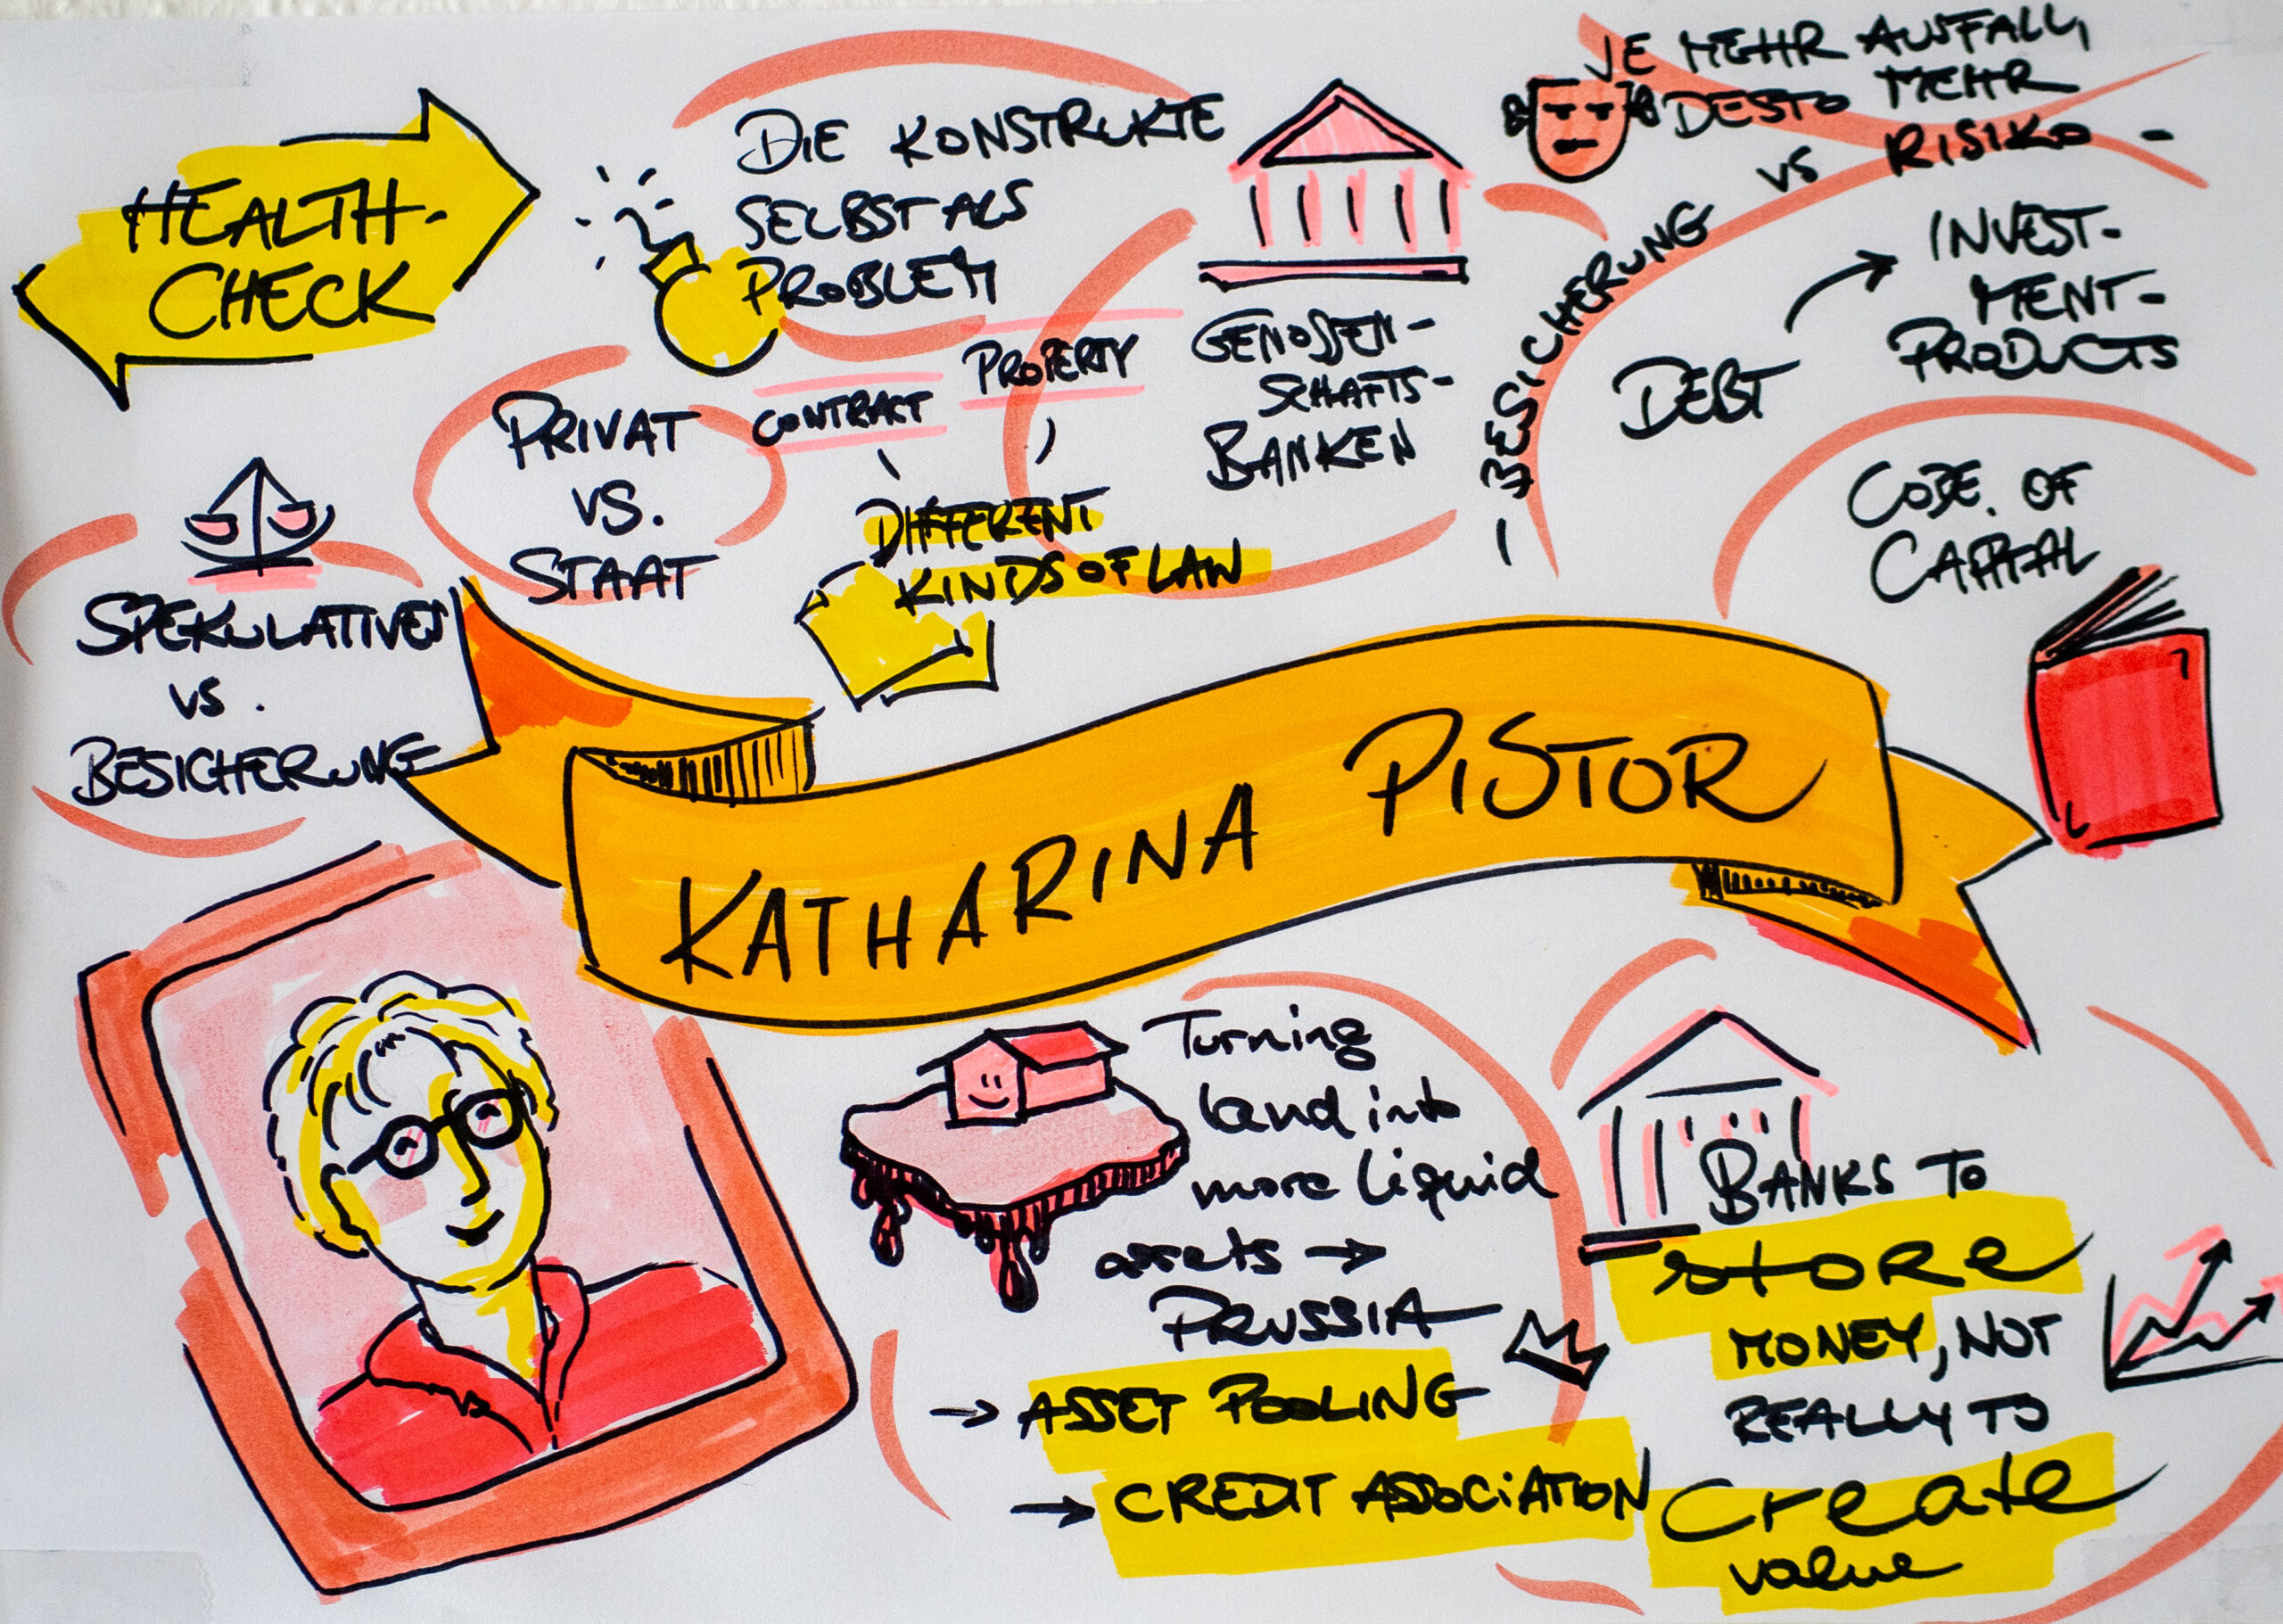 HEALTH-
CHECK
DIE KONSTRUKTE
SELBST ALS
PROBLEM
GENOSSEN-
SCHAFTS-
BANKEN
JE MEHR AUSFALL,
DESTO MEHR
RISIKO -
- BESICHERUNG VS
DEBT
INVEST-
MENT-
PRODUCTS
CODE. OF
CAPITAL
PRIVAT
VS.
STAAT
CONTRACT
PROPERTY
DIFFERENT
KINDS OF LAW
SPEKULATIVES
VS.
BESICHERUNG
KATHARINA PISTOR
Turning
land into
more liquid
assets →
PRUSSIA
→ ASSET POOLING
→ CREDIT ASSOCIATION
BANKS TO
store
MONEY, NOT
REALLY TO
create
value